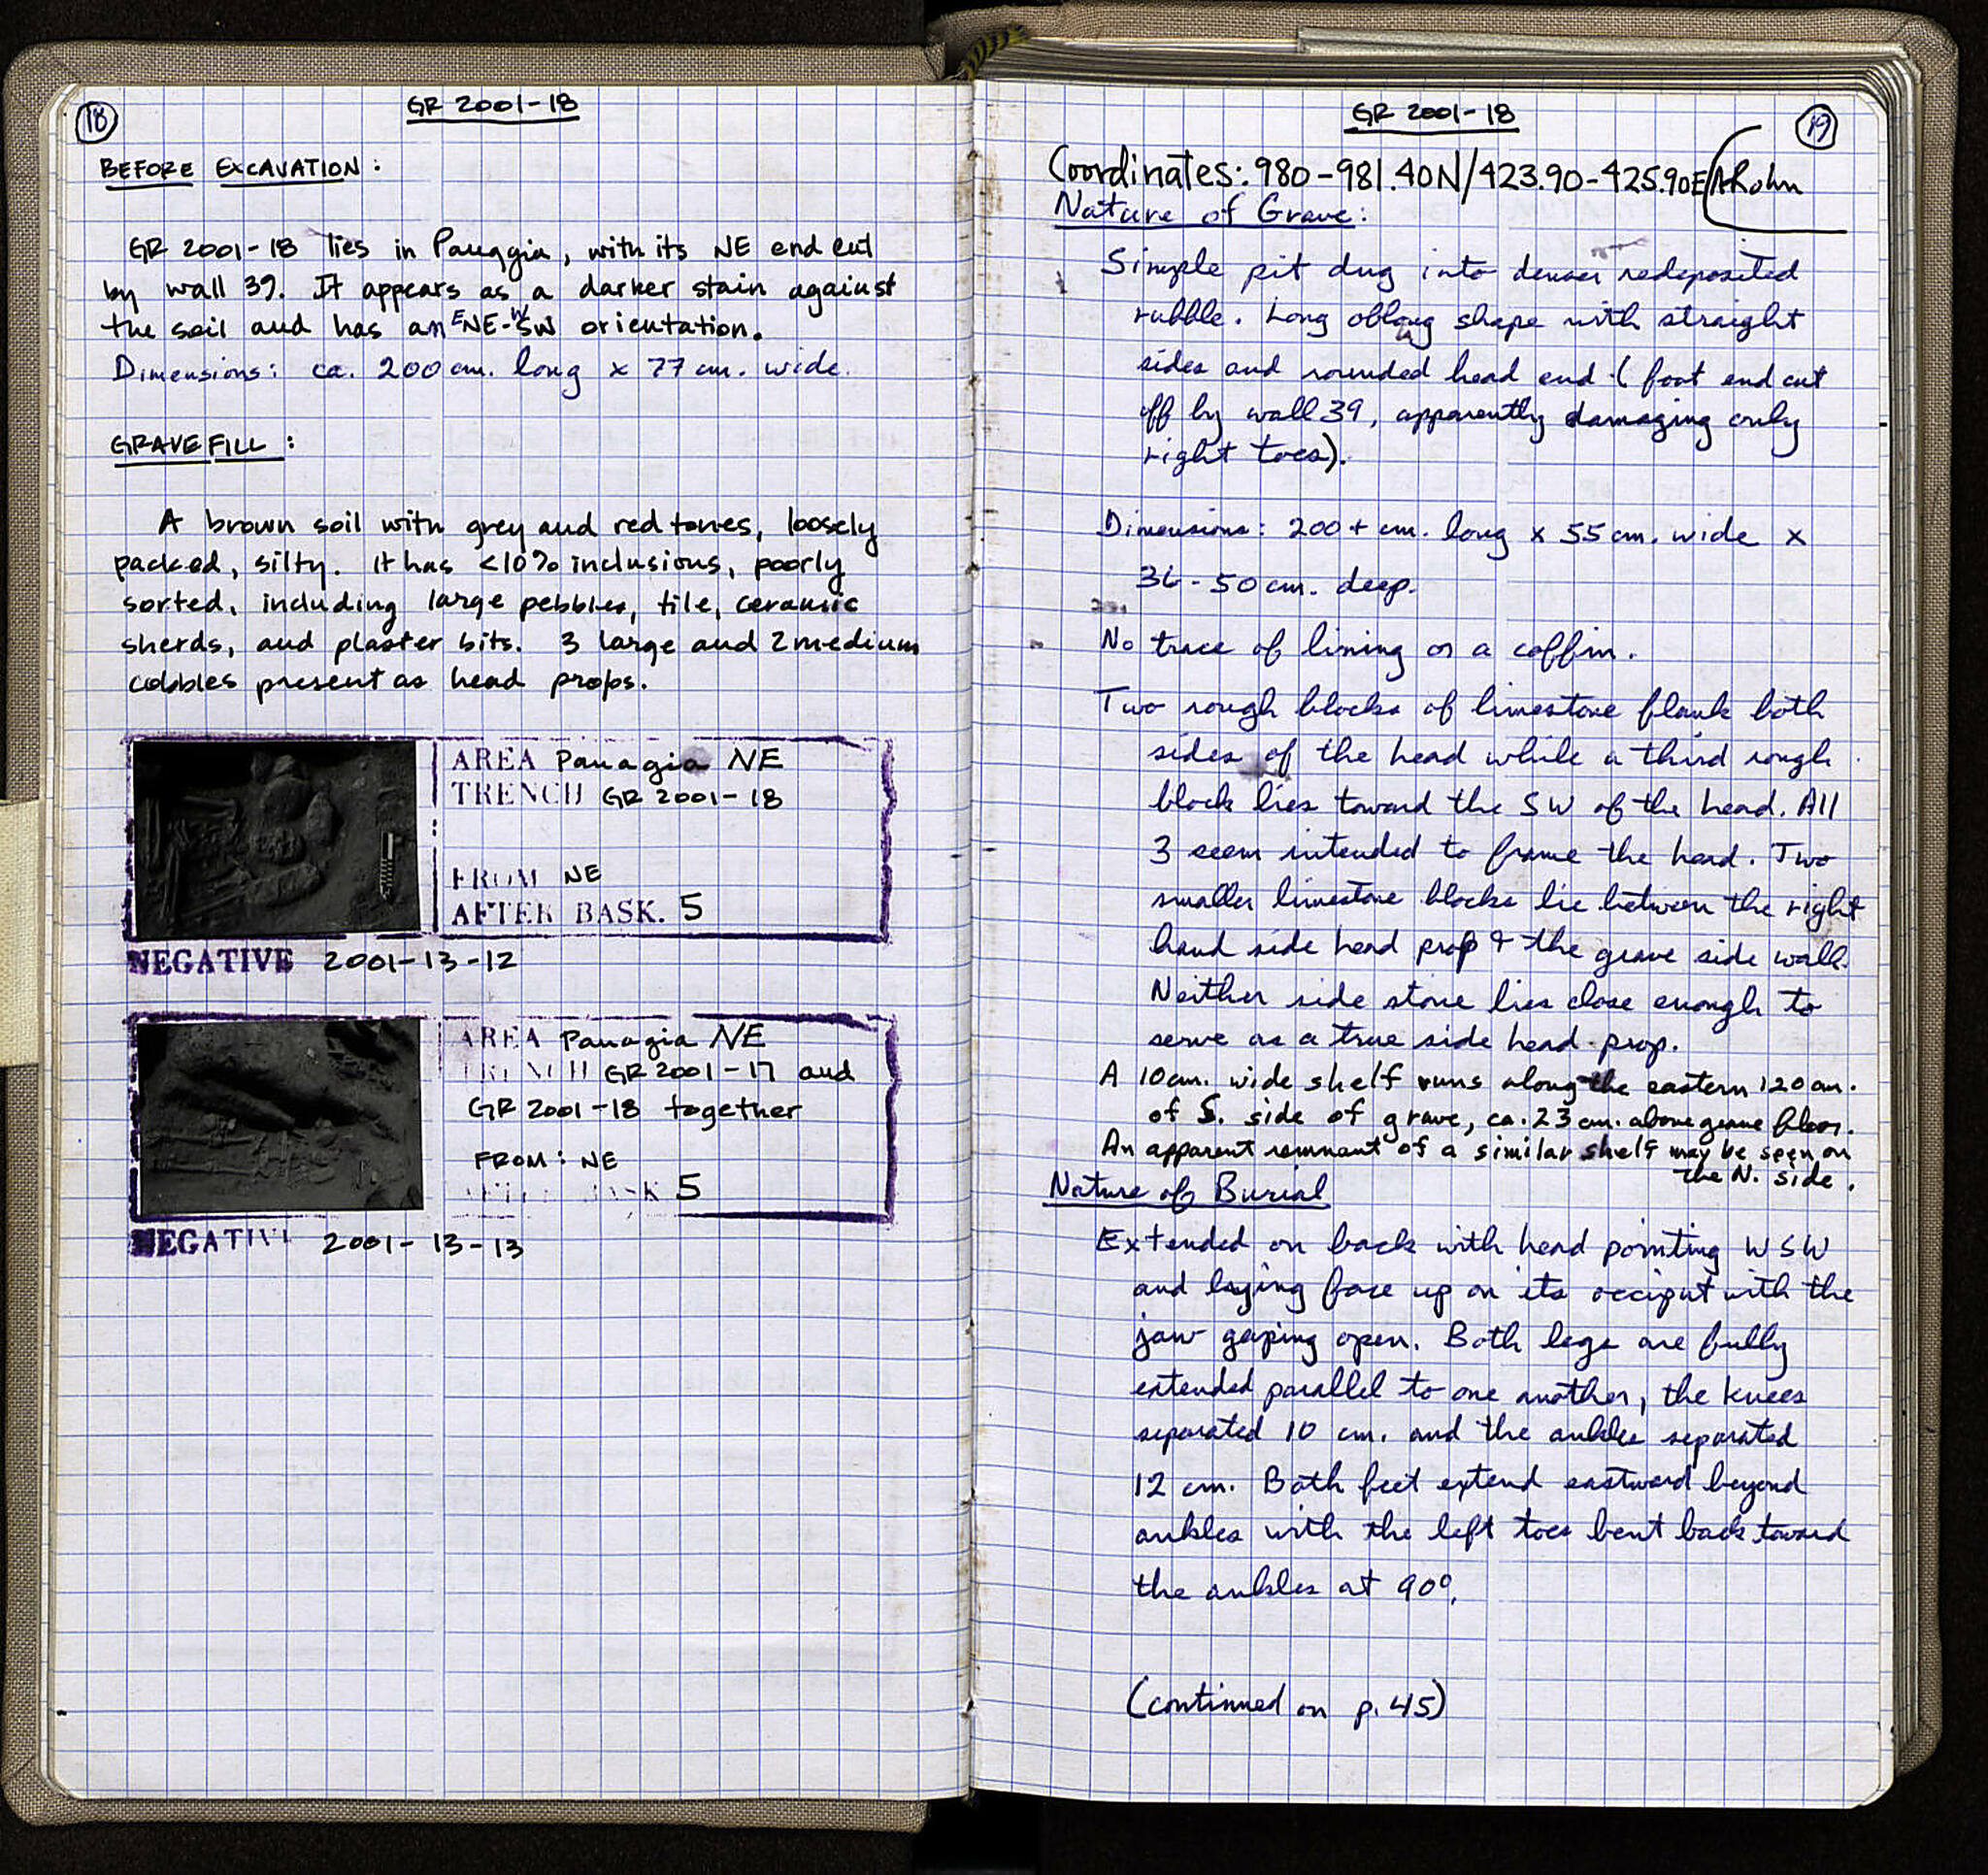 18
GR 2001-18
BEFORE EXCAVATION:
GR 2001-18 lies in Panaggia, with its NE end cut
by wall 39. It appears as a darker stain against
the soil and has an ENE-WSW orientation.
Dimensions: ca. 200 cm. long x 77 cm. wide.
GRAVE FILL:
A brown soil with grey and red tones, loosely
packed, silty. It has <10% inclusions, poorly
sorted, including large pebbles, tile, ceramic
sherds, and plaster bits. 3 large and 2 medium
cobbles present as head props.
AREA Panagia NE
TRENCH GR 2001-18
FROM NE
AFTER BASK. 5
NEGATIVE 2001-13-12
AREA Panagia NE
TRENCH GR 2001-17 and
GR 2001-18 together
FROM: NE
AFTER BASK 5
NEGATIVE 2001-13-13
GR 2001-18
19
Coordinates: 980-981.40N/423.90-425.90E
ARohn
Nature of Grave:
Simple pit dug into denser redeposited
rubble. Long oblong shape with straight
sides and rounded head end (foot end cut
off by wall 39, apparently damaging only
right toes).
Dimensions: 200+ cm. long x 55 cm. wide x
36-50 cm. deep.
No trace of lining or a coffin.
Two rough blocks of limestone flank both
sides of the head while a third rough
block lies toward the SW of the head. All
3 seem intended to frame the head. Two
smaller limestone blocks lie between the right
hand side head prop & the grave side wall.
Neither side stone lies close enough to
serve as a true side head prop.
A 10cm. wide shelf runs along the eastern 120 cm.
of S. side of grave, ca. 23 cm. above grave floor.
An apparent remnant of a similar shelf may be seen on
the N. side.
Nature of Burial
Extended on back with head pointing WSW
and laying face up on its occiput with the
jaw gaping open. Both legs are fully
extended parallel to one another, the knees
separated 10 cm. and the ankles separated
12 cm. Both feet extend eastward beyond
ankles with the left toes bent back toward
the ankles at 90°.
(continued on p. 45)